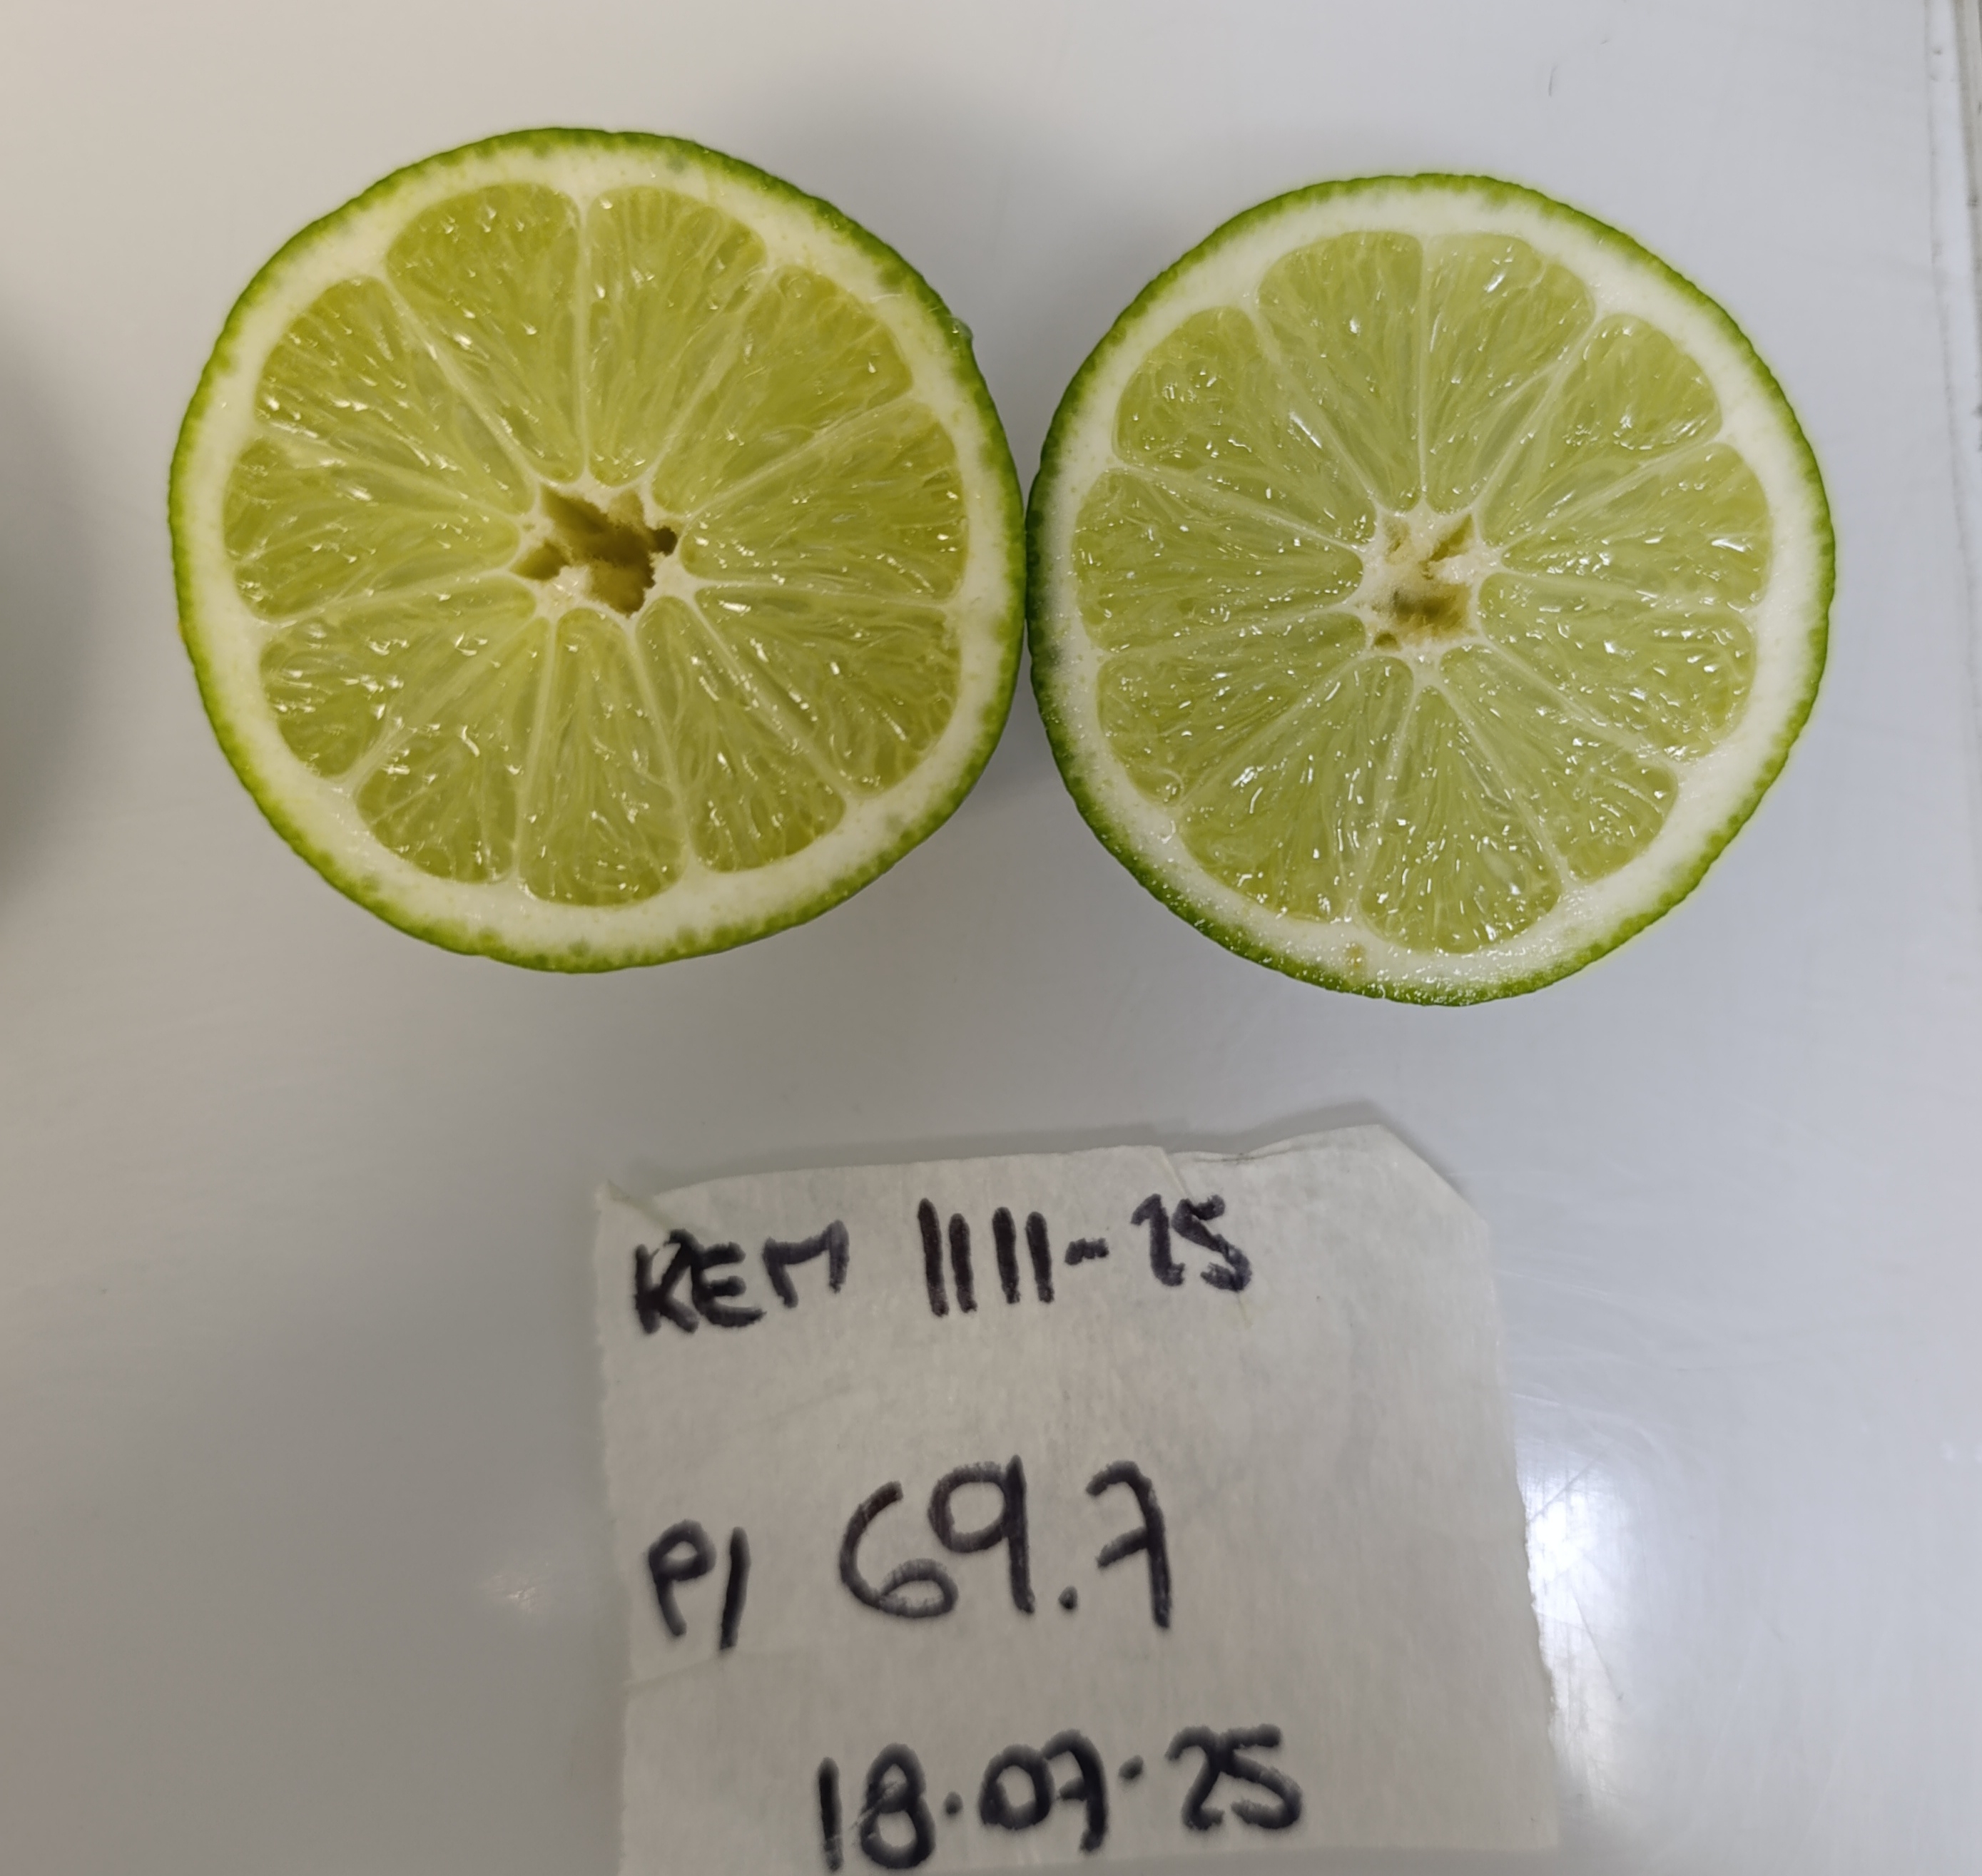 REM 1111-25
P/ 69.7
18.07.25